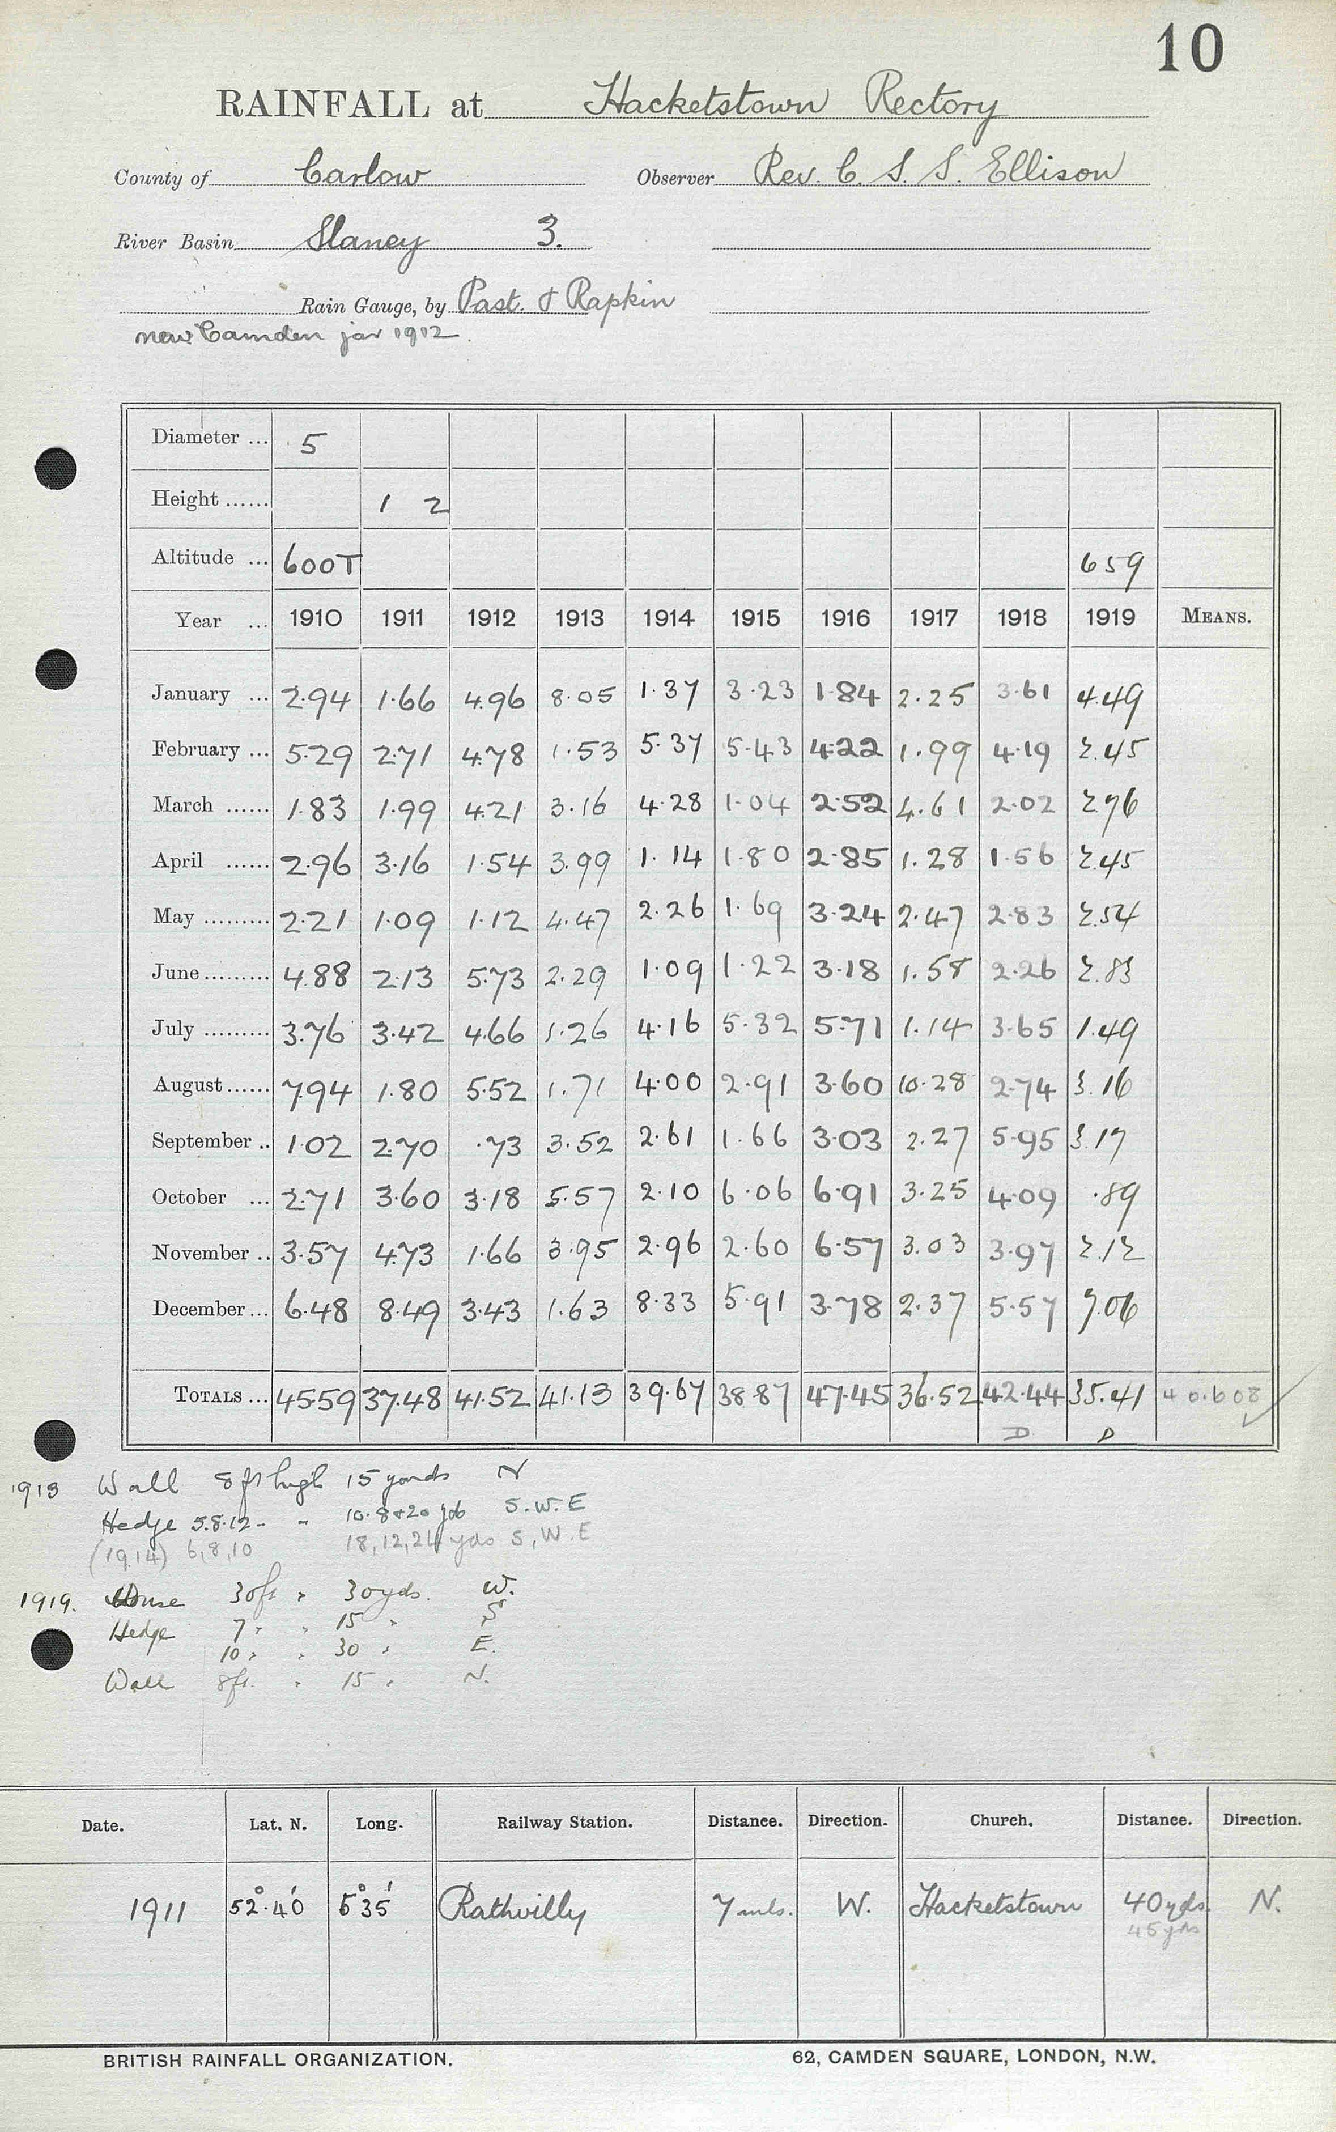 10
RAINFALL at Hacketstown Rectory
County of Carlow Observer Rev. C. S. S. Ellison
River Basin Slaney 3.
Rain Gauge, by Past. & Rapkin
new Camden jar 1912
Diameter ... 5
Height ...... 1 2
Altitude ... 600T 659
Year ... 1910 1911 1912 1913 1914 1915 1916 1917 1918 1919 MEANS.
January ... 2.94 1.66 4.96 8.05 1.37 3.23 1.84 2.25 3.61 4.49
February ... 5.29 2.71 4.78 1.53 5.37 5.43 4.22 1.99 4.19 2.45
March ...... 1.83 1.99 4.21 3.16 4.28 1.04 2.52 4.61 2.02 2.76
April ...... 2.96 3.16 1.54 3.99 1.14 1.80 2.85 1.28 1.56 2.45
May ......... 2.21 1.09 1.12 4.47 2.26 1.69 3.24 2.47 2.83 2.54
June ......... 4.88 2.13 5.73 2.29 1.09 1.22 3.18 1.58 2.26 2.83
July ......... 3.76 3.42 4.66 1.26 4.16 5.32 5.71 1.14 3.65 1.49
August ...... 7.94 1.80 5.52 1.71 4.00 2.91 3.60 10.28 2.74 3.16
September .. 1.02 2.70 .73 3.52 2.61 1.66 3.03 2.27 5.95 3.17
October ... 2.71 3.60 3.18 5.57 2.10 6.06 6.91 3.25 4.09 .89
November .. 3.57 4.73 1.66 3.95 2.96 2.60 6.57 3.03 3.97 2.12
December ... 6.48 8.49 3.43 1.63 8.33 5.91 3.78 2.37 5.57 7.06
TOTALS ... 45.59 37.48 41.52 41.13 39.67 38.87 47.45 36.52 42.44 35.41 40.608
D D
1913 Wall 8 ft high 15 yards N
Hedge 5.8.12 - " 10.8 & 20 yds S.W.E
(1914) 6,8,10 18,12,24 yds S,W.E
1919. House 30ft " 30yds. W.
Hedge 7 " " 15 " S
10 " " 30 " E.
Wall 8ft. " 15 " N.
Date. Lat. N. Long. Railway Station. Distance. Direction. Church. Distance. Direction.
1911 52°.40' 6°35' Rathvilly 7 mls. W. Hacketstown 40yds. N.
45 yds
BRITISH RAINFALL ORGANIZATION. 62, CAMDEN SQUARE, LONDON, N.W.